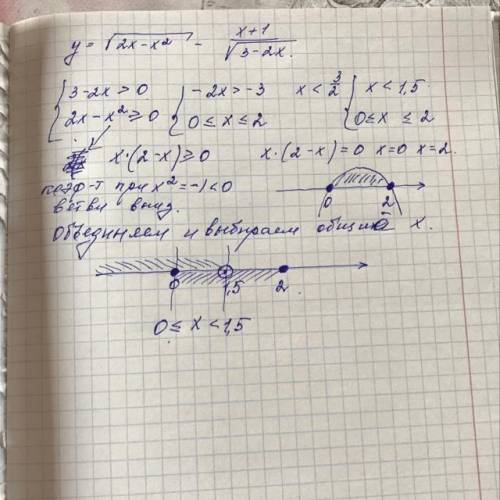 y = √(2x-x²) - (x+1)/√(3-2x).
{ 3-2x > 0 { -2x > -3 x < 3/2 { x < 1,5
{ 2x-x² ≥ 0 { 0 ≤ x ≤ 2 { 0 ≤ x ≤ 2
x·(2-x) ≥ 0 x·(2-x) = 0 x=0 x=2.
коэф-т при x² = -1 < 0
ветви вниз. 0 2
Объединяем и выбираем общие x.
0 1,5 2
0 ≤ x < 1,5